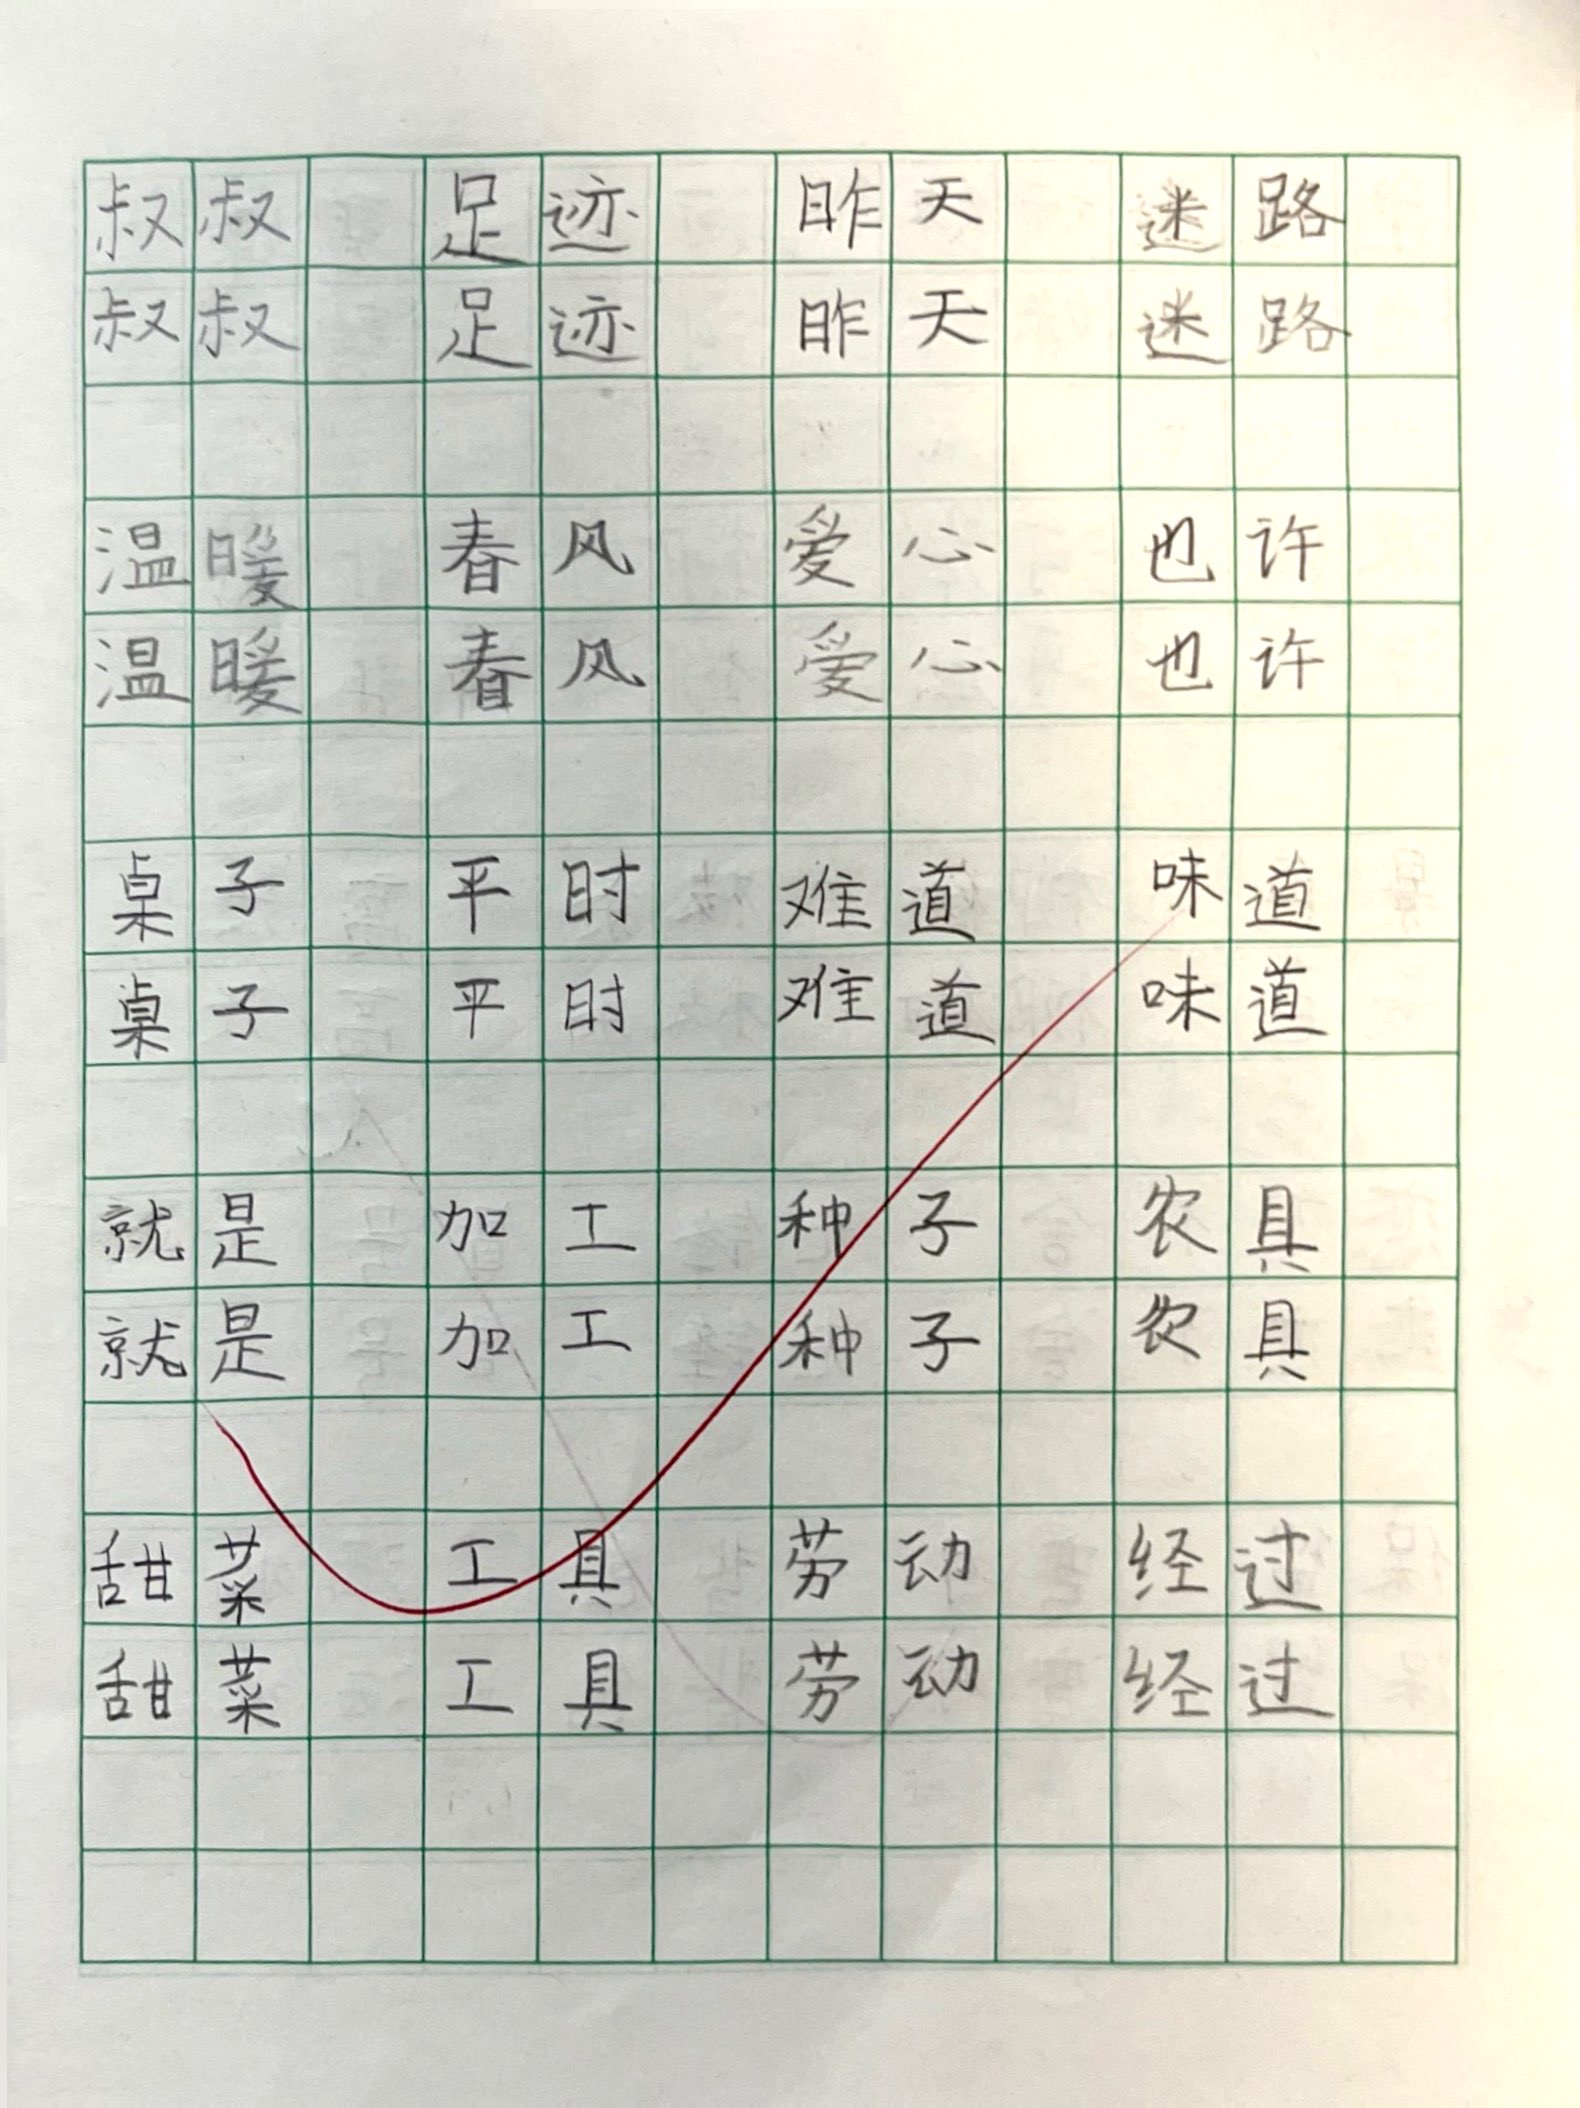 叔叔 足迹 昨天 迷路
叔叔 足迹 昨天 迷路
温暖 春风 爱心 也许
温暖 春风 爱心 也许
桌子 平时 难道 味道
桌子 平时 难道 味道
就是 加工 种子 农具
就是 加工 种子 农具
甜菜 工具 劳动 经过
甜菜 工具 劳动 经过